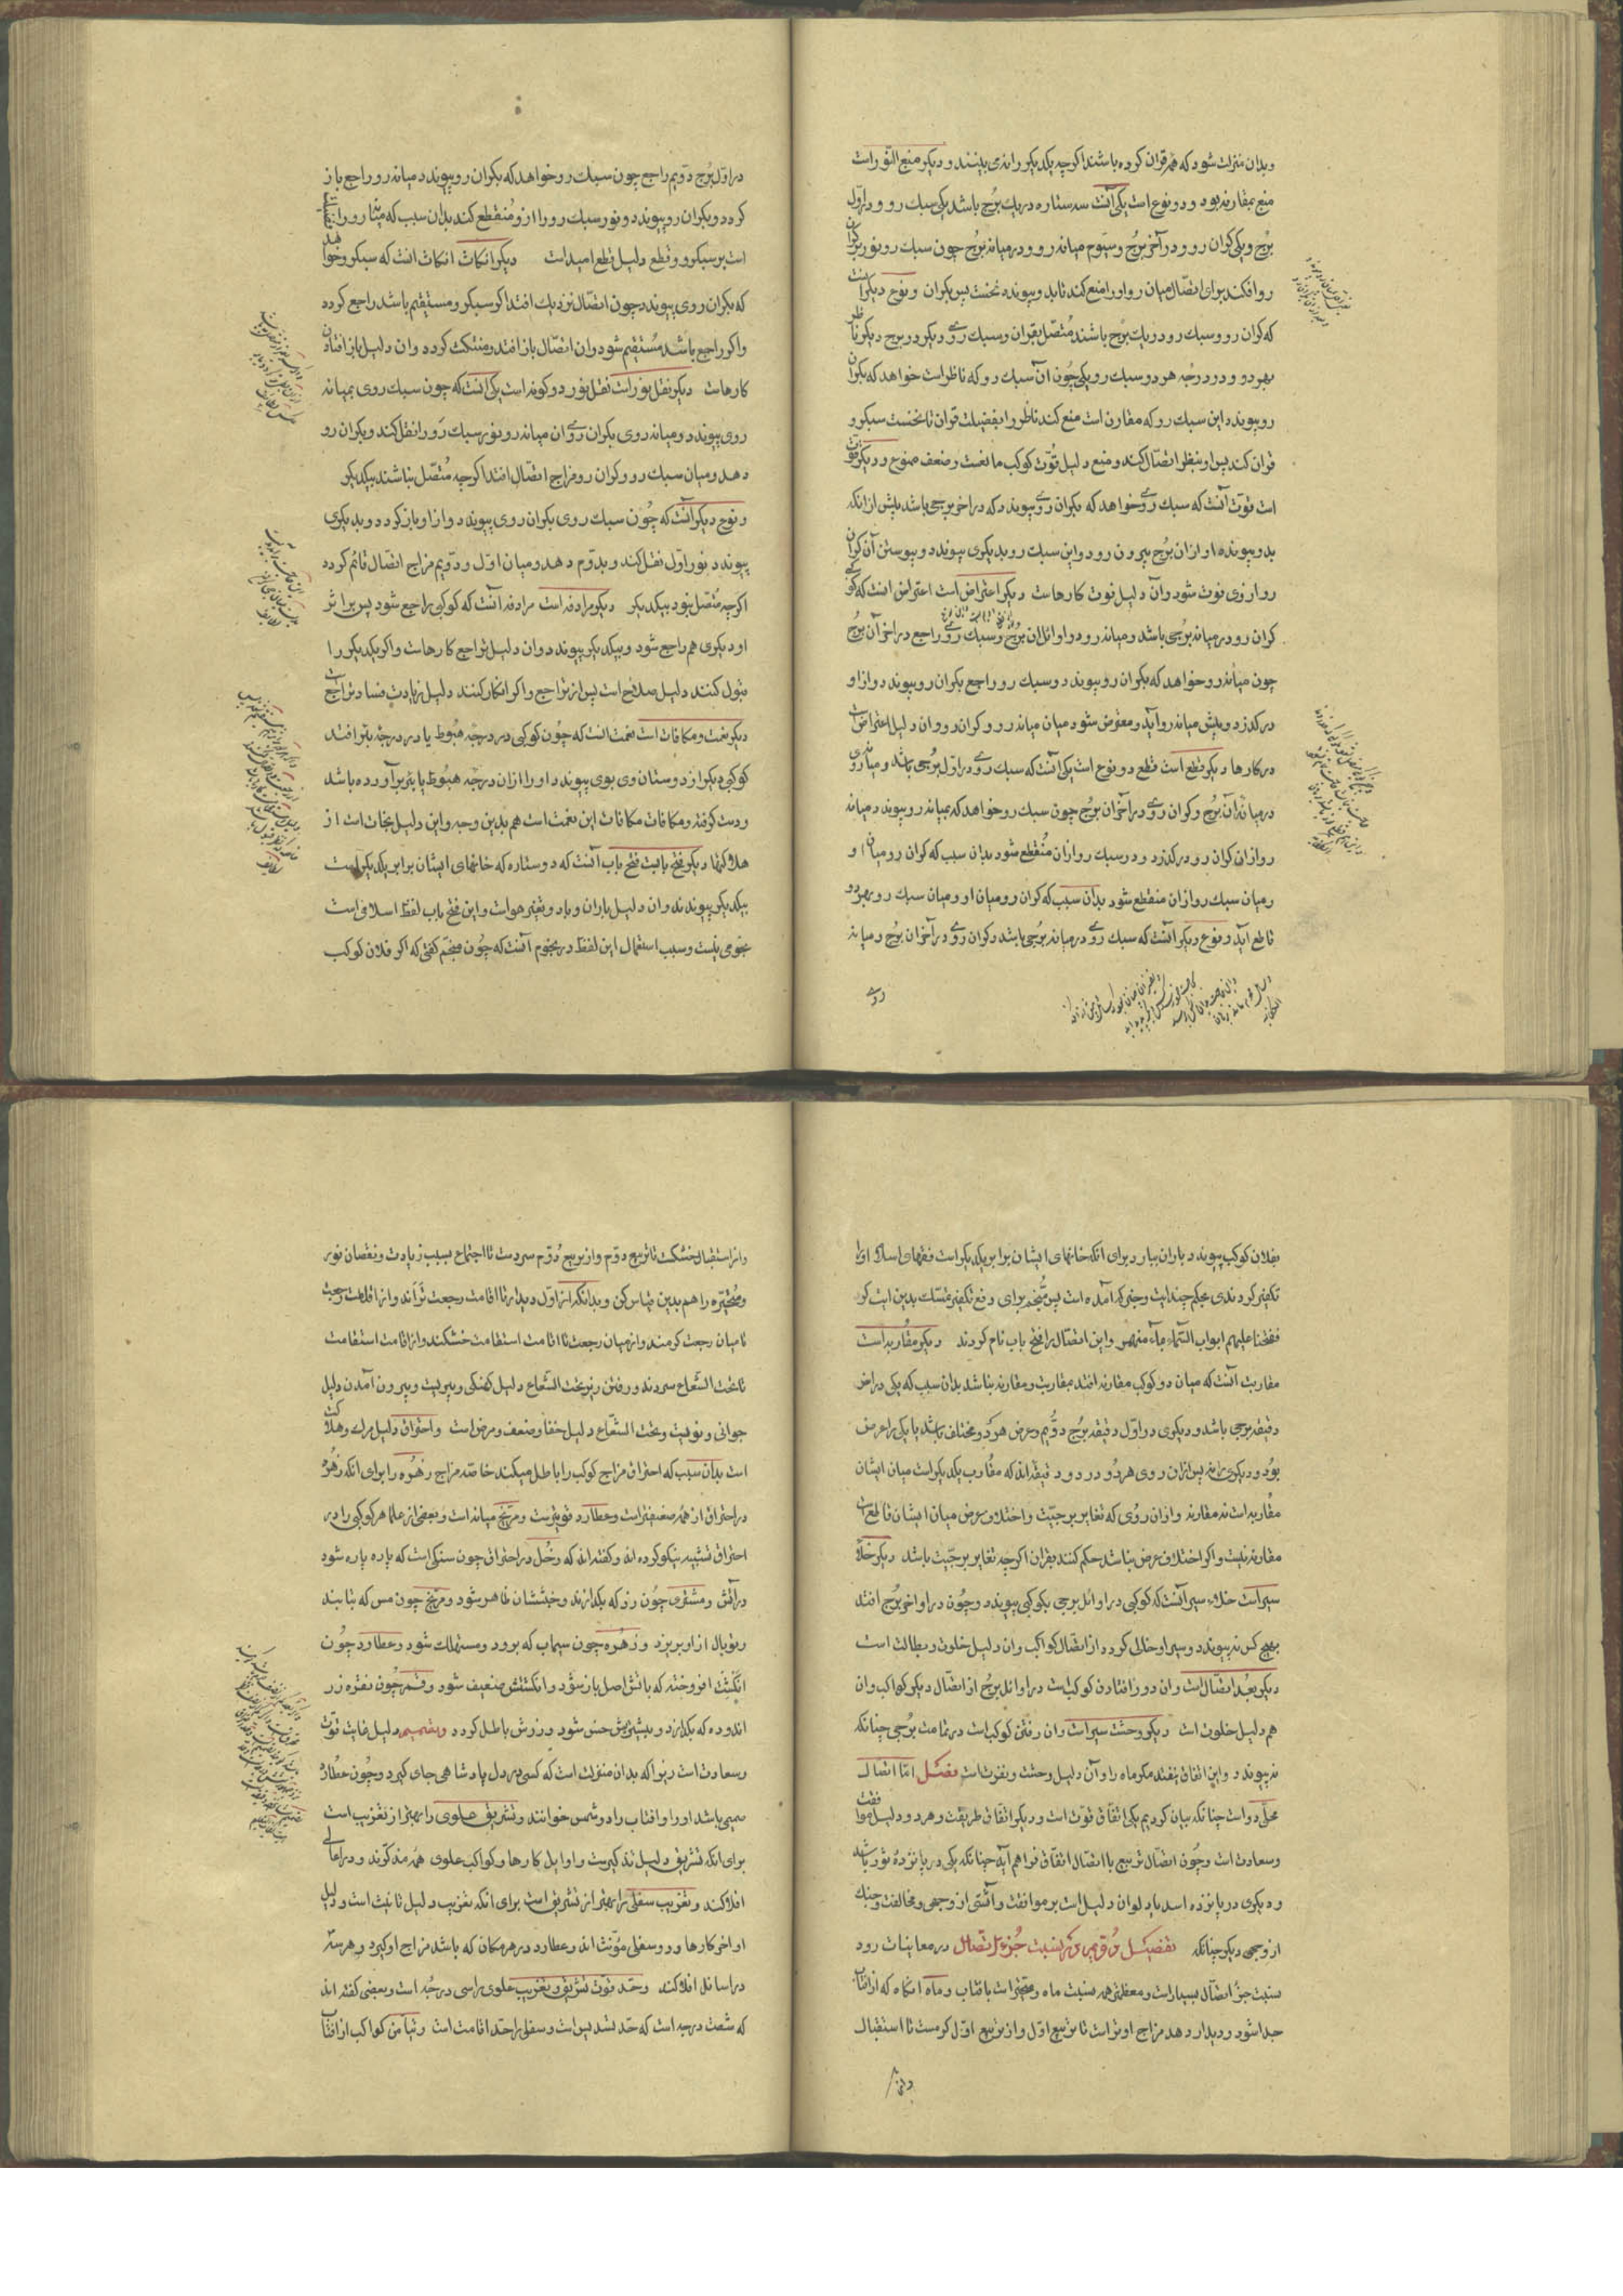 وبدان منزلت شود که هم قران کرده باشند اکرچه یکدیکر را نه می بینند و دیکر منع النور است
منع بمقارنه بود و دو نوع است یکی آنست سه ستاره در یك برج باشد یکی سبك رو و در اول
برج و یکی کران رو و در آخر برج و سیوم میانه رو و در میانه برج چون سبك رو نور بر کران
رو افکند برای اتصال میان رو او را منع کند تا بدو پیوندد نخست پس بکران و نوع دیکر آنست
که کران رو و سبك رو در یك برج باشند متصل بقران و سبك روی دیکر در برج دیکر ناظر
بهر دو و در درجه هر دو سبك رو یکی چون آن سبك رو که ناظر است خواهد که بکران
رو پیوندد این سبك رو که مقارن است منع کند ناظر را بفضیلت قران تا نخست سبکرو
قران کند پس او بنظر اتصال کند و منع دلیل قوت کوکب مانعست و ضعف ممنوع و دیکر فوت
است فوت آنست که سبك روی خواهد که بکران روی پیوندد که در آخر برجی باشد پیش از انکه
بدو پیوندد او از ان برج بیرون رود و این سبك رو بدیکری پیوندد و پیوستن آن کران
رو از وی فوت شود و آن دلیل فوت کارهاست دیکر اعتراض است اعتراض انست که کوکبی
کران رو در میانه برجی باشد و میانه رو در اوائل ان برج و سبك روی راجع در آخر آن برج
چون میانه رو خواهد که بکران رو پیوندد و سبك رو راجع بکران رو پیوندد و از او
درکذرد و پیش میانه رو آید و معترض شود میان میانه رو و کران رو و ان دلیل اعتراضات
در کارها دیکر قطع است قطع دو نوع است یکی آنست که سبك روی در اول برجی باشد و میانه روی
در میانه آن برج و کران روی در آخر آن برج چون سبك رو خواهد که بمیانه رو پیوندد میانه
رو از ان کران رو درکذرد و در سبك رو از ان منقطع شود بدان سبب که کران رو میان او
و میان سبك رو از ان منقطع شود بدان سبب که کران رو میان او و میان سبك رو بهر دو
قاطع آید و نوع دیکر آنست که سبك روی در میانه برجی باشد و کران روی در آخر ان برج و میانه
روی
در اول برج دویم راجع چون سبك رو خواهد که بکران رو پیوندد میانه رو راجع باز
کردد و بکران رو پیوندد و نور سبك رو را ازو منقطع کند بدان سبب که میانه رو را
است بر سبکرو و قطع دلیل قطع امیداست دیکر انکاث انکاث انست که سبکرو خواهد
که بکران روی پیوندد چون اتصال نزدیك افتد اکر سبکرو مستقیم باشد راجع کردد
واکر راجع باشد مستقیم شود و ان اتصال باز افتد و منتکث کردد و ان دلیل باز افتادن
کارهاست دیکر نقل نور است نقل نور دو کونه است یکی انست که چون سبك روی بمیانه
روی پیوندد و میانه روی بکران روی ان میانه رو نور سبك رو را نقل کند و بکران رو
دهد و میان سبك رو و کران رو مزاج اتصال افتد اکرچه متصل نباشند بیکدیکر
و نوع دیکر آنست که چون سبك روی بکران روی پیوندد و از او باز کردد و بدیکری
پیوندد نور اول نقل کند و بدوم دهد و میان اول و دویم مزاج اتصال قائم کردد
اکرچه متصل نبود بیکدیکر دیکر مرادفه است مرادفه آنست که کوکبی راجع شود پس بر اثر
او دیکری هم راجع شود و بیکدیکر پیوندد و ان دلیل تراجع کارهاست و اکر یکدیکر را
قبول کنند دلیل صلاح است پس از تراجع و اکر انکار کنند دلیل زیادت فساد تراجع است
دیکر نعمت و مکافات است نعمت انست که چون کوکبی در درجه هبوط یا در درجه بئر افتد
کوکبی دیکر از دوستان وی بوی پیوندد او را از ان درجه هبوط یا بئر برآورده باشد
و دست کرفته و مکافات مکافات این نعمت است هم بدین وجه و این دلیل نجات است از
هلاکتها دیکر فتح بابست فتح باب آنست که دو ستاره که خانهای ایشان برابر یکدیکر است
بیکدیکر پیوندند و ان دلیل باران و باد و تغیر هواست و این فتح باب لفظ اسلامی است
نجومی نیست و سبب استعمال این لفظ در نجوم آنست که چون منجم کفتی که اکر فلان کوکب
بفلان کوکب پیوندد باران ببارد برای انکه خانهای ایشان برابر یکدیکر است فقهای اسلام او را
تکفیر کردندی بحکم چند ایت و خبر که آمده است پس منجم برای دفع تکفیر تمسك بدین ایت کرد
ففتحنا علیهم ابواب السماء بماء منهمر و این اتصال را فتح باب نام کردند دیکر مقاربه است
مقاربت آنست که میان دو کوکب مقارنه افتد مقاربت و مقارنه نباشد بدان سبب که یکی در آخر
دقیقه برجی باشد و دیکری در اول دقیقه برج دویم و عرض هر دو مختلف باشد یا یکی را عرض
بود و دیکری را نه پس از ان روی هر دو در دو دقیقه اند که مقارب یکدیکر است میان ایشان
مقاربه است نه مقارنه و از ان روی که تغایر برجیت و اختلاف عرض میان ایشان قاطع است
مقارنه نیست و اکر اختلاف عرض نباشد حکم کنند بقران اکرچه تغایر برجیت باشد دیکر خلاء
سیر است خلاء سیر آنست که کوکبی در اوائل برجی بکوکبی پیوندد و چون در اواخر برج افتد
بهیچ کس نه پیوندد و سیر او خالی کردد از اتصال کواکب و ان دلیل خلوت و بطالت است
دیکر بعد اتصال است و ان دور افتادن کوکب است در اوائل برج از اتصال دیکر کواکب و ان
هم دلیل خلوت است دیکر وحشت سیر است و ان رفتن کوکب است در تمامت برجی چنانکه
نه پیوندد و این اتفاق نیفتد مکر ماه را و آن دلیل وحشت و نفرت است فصل اما اتصال
محلی دو است چنانکه بیان کردیم یکی اتفاق قوت است و دیکر اتفاق طریقت و هر دو دلیل موافقت
و سعادت است و چون اتصال تربیع با اتصال اتفاق فراهم آید چنانکه یکی در پانزده ثور باشد
و دیکری در پانزده اسد یا دلو ان دلیل است بر موافقت و آشتی از وجهی و مخالفت و جنك
از وجهی دیکر چنانکه تفضیل نسبت جزء اتصال در معاینات رود
نسبت جزء اتصال بسیار است و معظم همه نسبت ماه و متحیره است بافتاب و ماه انکاه که از افتاب
جدا شود و دیدار دهد مزاج او تر است تا تربیع اول و از تربیع اول کرمست تا استقبال
و از
و از استقبال خشکست تا تربیع دوم و از تربیع دوم سردست تا اجتماع بسبب زیادت و نقصان نور
و متحیره را هم بدین قیاس کن و بدانکه از اول دیدار تا اقامت رجعت ترآند و از اقامت رجعت
تا میان رجعت کرمند و از میان رجعت تا اقامت استقامت خشکند و از اقامت استقامت
تا تحت الشعاع سردند و رفتن زیر تحت الشعاع دلیل کهنکی و پیریست و بیرون آمدن دلیل
جوانی و نویست و تحت الشعاع دلیل خفا و ضعف و مرض است و احتراق دلیل مرك و هلاکت
است بدان سبب که احتراق مزاج کوکب را باطل میکند خاصه مزاج زهره را برای انکه زهره
در احتراق از همه ضعیفتر است و عطارد قویترست و مریخ میانه است و بعضی از علما هر کوکبی را در
احتراق تشبیه نیکو کرده اند و کفته اند که زحل در احتراق چون سنکی است که پاره پاره شود
در آتش و مشتری چون زر که بکدازند و خبثشان ظاهر شود و مریخ چون مس که بتابند
و توبال از او بریزد و زهره چون سیماب که برود و مستهلك شود و عطارد چون
انکشت افروخته که باتش اصل باز شود و انکشتش ضعیف شود و قمر چون نقره زر
اندوده که بکدازد و بیشترش خس شود و زرش باطل کردد و تصمیم دلیل غایت قوت
و سعادت است زیرا که بدان منزلت است که کسی در دل پادشاهی جای کیرد و چون عطارد
صمیمی باشد او را و افتاب را دو شمس خوانند و تشریق علوی را بهتر از تغریب است
برای انکه تشریق دلیل تذکیرست و اوایل کارها و کواکب علوی همه مذکرند و در اعالی
افلاکند و تغریب سفلی را بهتر از تشریق است برای انکه تغریب دلیل تانیث است و دلیل
اواخر کارها و دو سفلی مؤنث اند و عطارد در هر مکان که باشد مزاج او کیرد و هر سه
در اسافل افلاکند و حد قوت تشریق و تغریب علوی را سی درجه است و بعضی کفته اند
که شصت درجه است که حد تسدیس است و سفلی را حد اقامت است و تیامن کواکب از افتاب